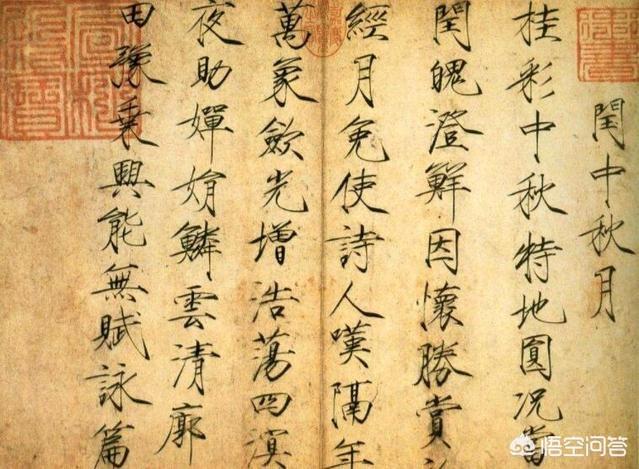 閏中秋月
桂彩中秋特地圓况當
閏魄澄鮮因懷勝賞
經月免使詩人嘆隔年
萬象歛光增浩蕩四溟
夜助嬋娟鱗雲清廓
田豫乘興能無賦詠篇
悟空问答